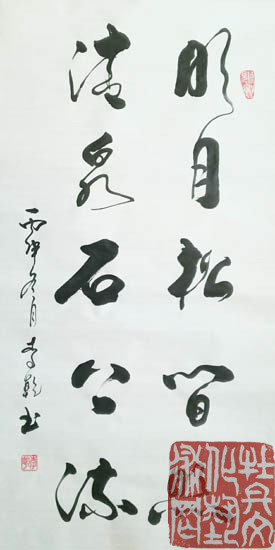 明月松间
清泉石上流
丙申冬月